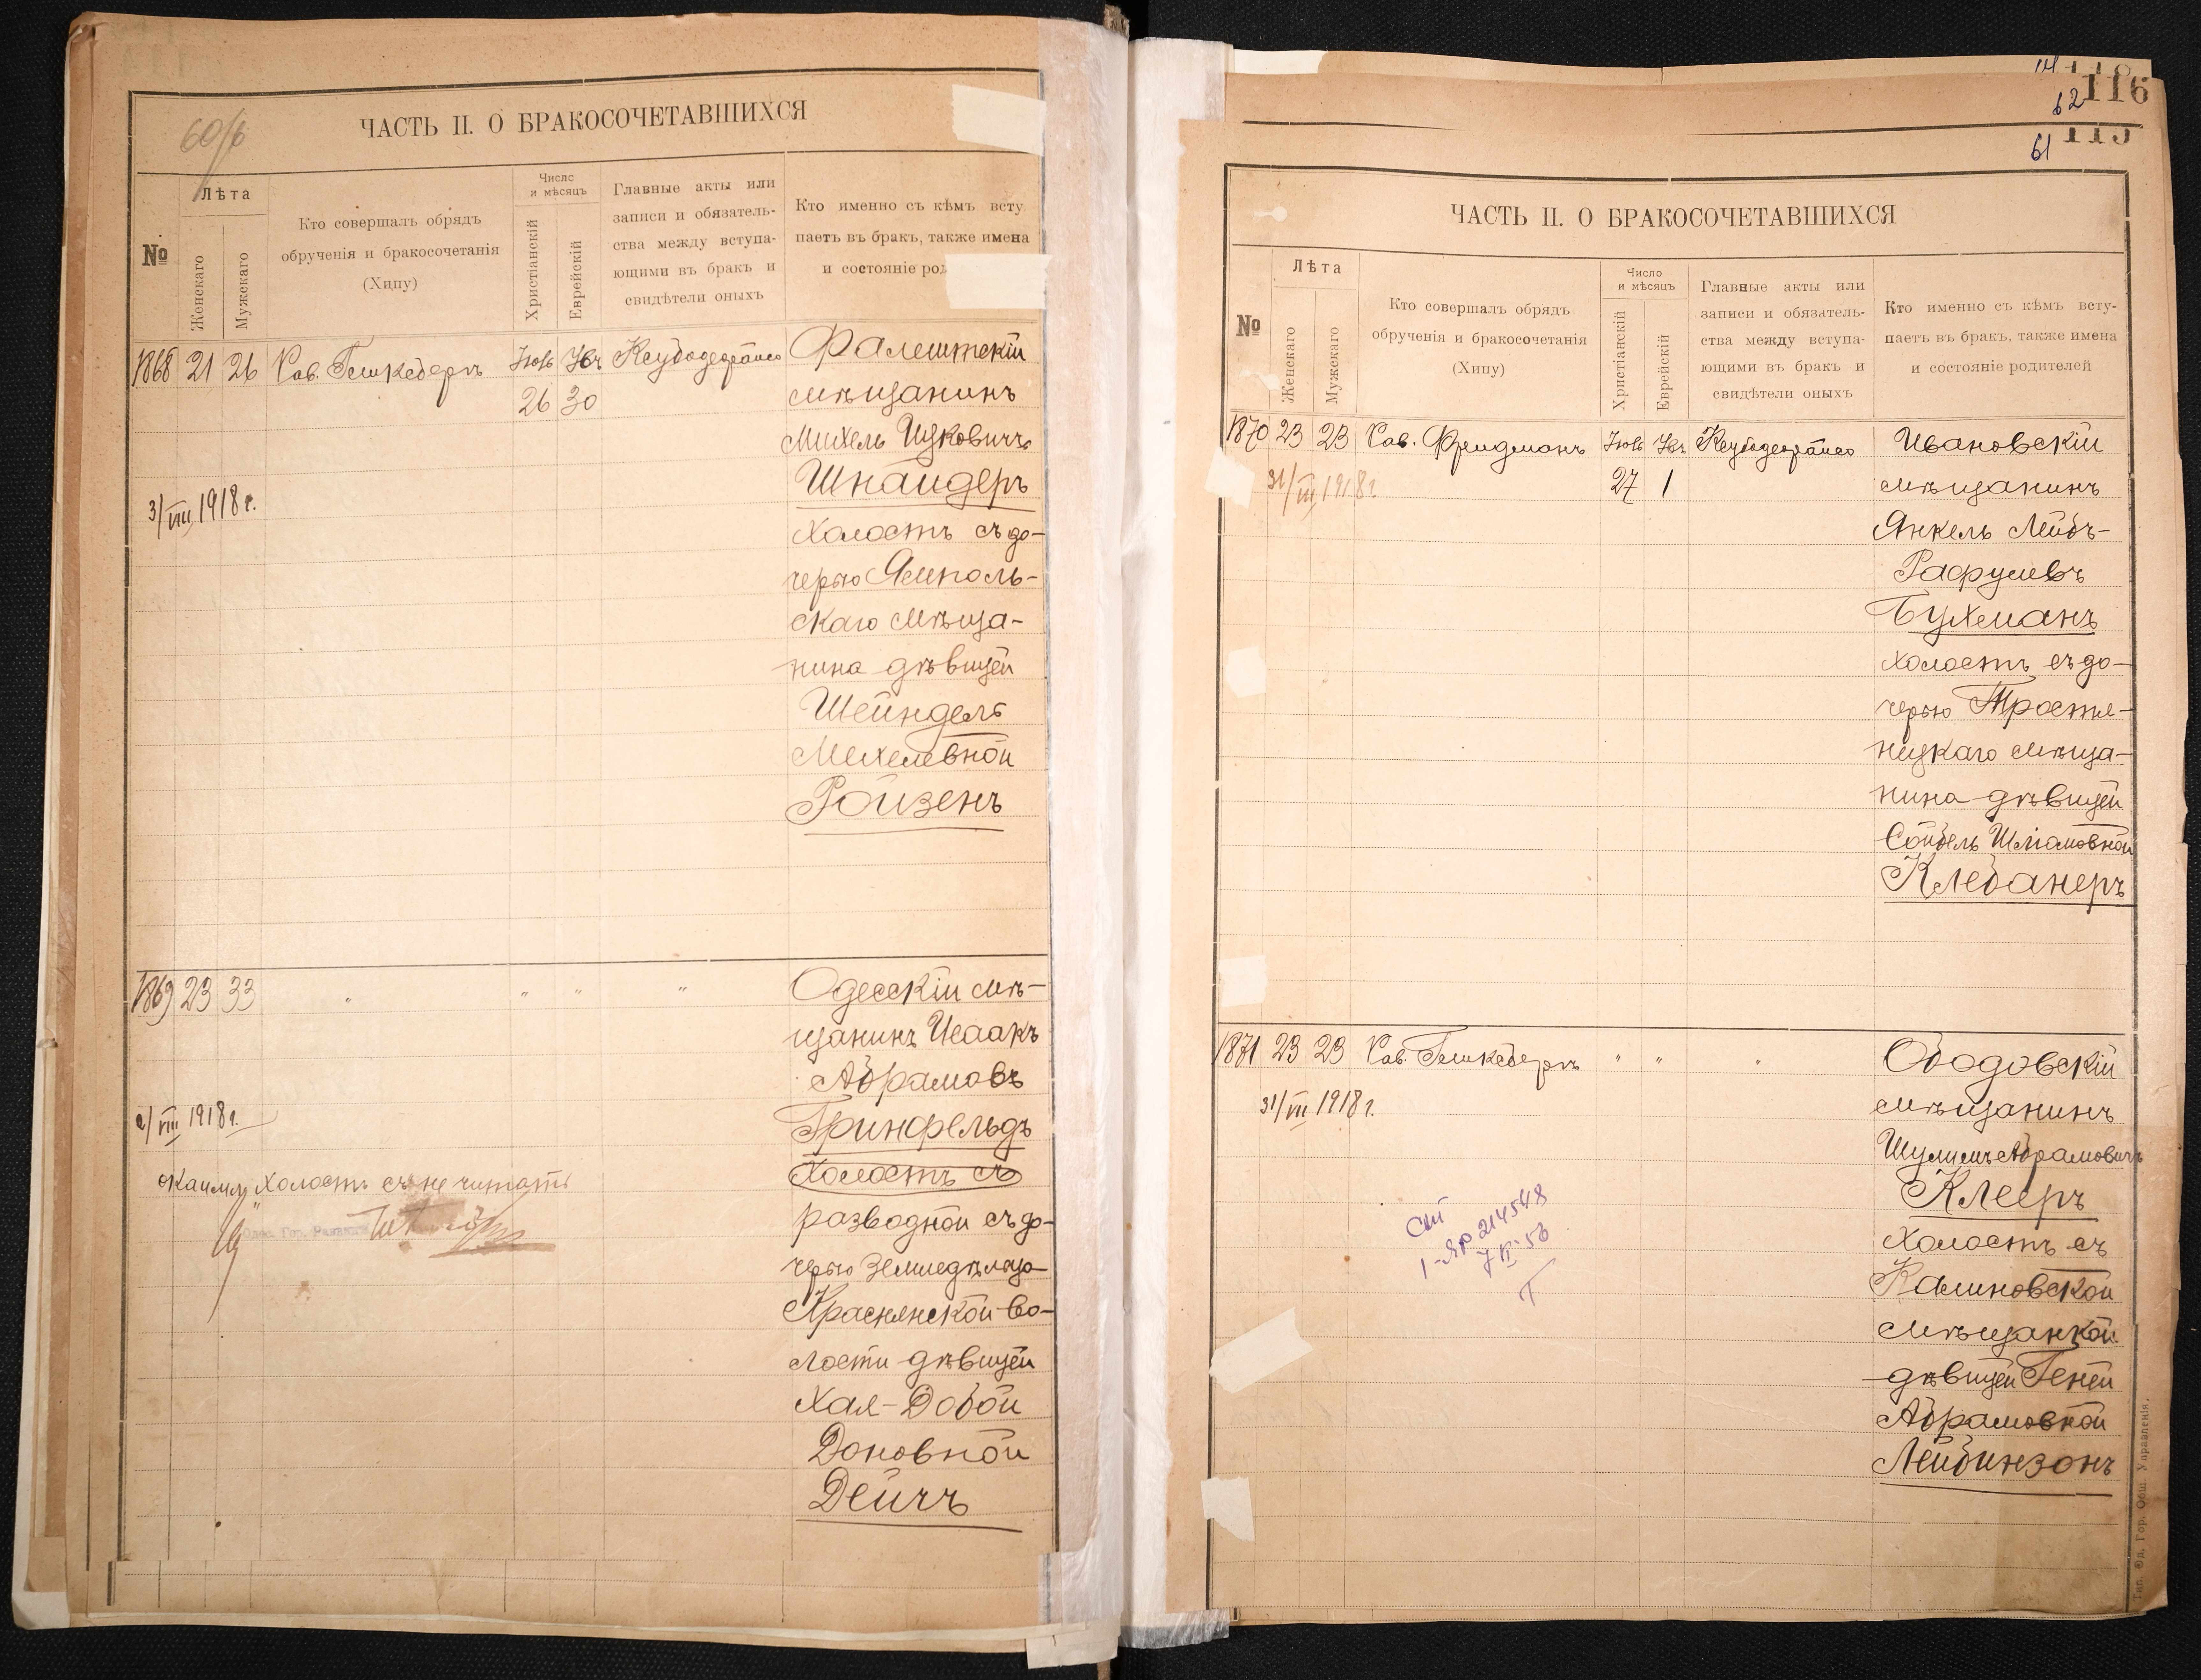 60/б
ЧАСТЬ II. О БРАКОСОЧЕТАВШИХСЯ
№
Лѣта
Женскаго
Мужскаго
Кто совершалъ обрядъ
обрученія и бракосочетанія
(Хипу)
Число
и мѣсяцъ
Христіанскій
Еврейскій
Главные акты или
записи и обязатель-
ства между вступа-
ющими въ бракъ и
свидѣтели оныхъ
Кто именно съ кѣмъ всту
паетъ въ бракъ, также имена
и состояніе род
1868 21 26
26 30
Фалештскій
мѣщанинъ
Михель Ицковичъ
Шнайдеръ
холостъ съ до-
черью Ямполь-
скаго мѣща-
нина дѣвицей
Шейндель
Михелевной
Ройзенъ
3/VIII 1918 г.
1869 23 33 " " " "
Одесскій мѣ-
щанинъ Исаакъ
Абрамовъ
Гринфельдъ
холостъ съ
разводной съ до-
черью земледѣльца
Краснянской во-
лости дѣвицей
Хая-Добой
Доновной
Дейчъ
2/VIII 1918 г.
холостъ съ не читать
116
62
115
61
ЧАСТЬ II. О БРАКОСОЧЕТАВШИХСЯ
№
Лѣта
Женскаго
Мужскаго
Кто совершалъ обрядъ
обрученія и бракосочетанія
(Хипу)
Число
и мѣсяцъ
Христіанскій
Еврейскій
Главные акты или
записи и обязатель-
ства между вступа-
ющими въ бракъ и
свидѣтели оныхъ
Кто именно съ кѣмъ всту-
паетъ въ бракъ, также имена
и состояніе родителей
1870 23 23 Рав. Фридманъ
27 1
Ивановскій
мѣщанинъ
Янкель Лейбъ-
Рафулевъ
Бухманъ
холостъ съ до-
черью Тростя-
нецкаго мѣща-
нина дѣвицей
Сойбель Шліомовной
Клебанеръ
31/VIII 1918 г.
1871 23 23 Рав. " " "
Ободовскій
мѣщанинъ
Шулимъ Абрамовичъ
Клееръ
холостъ съ
Калиновской
мѣщанкой
дѣвицей Геней
Абрамовной
Лейбинзонъ
31/VII 1918 г.
214548
Тип. Од. Гор. Общ. Управленія.